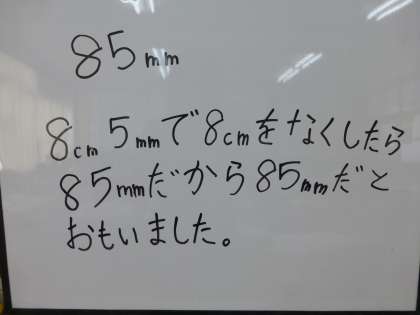 85mm
8cm5mmで8cmをなくしたら
85mmだから85mmだと
おもいました。